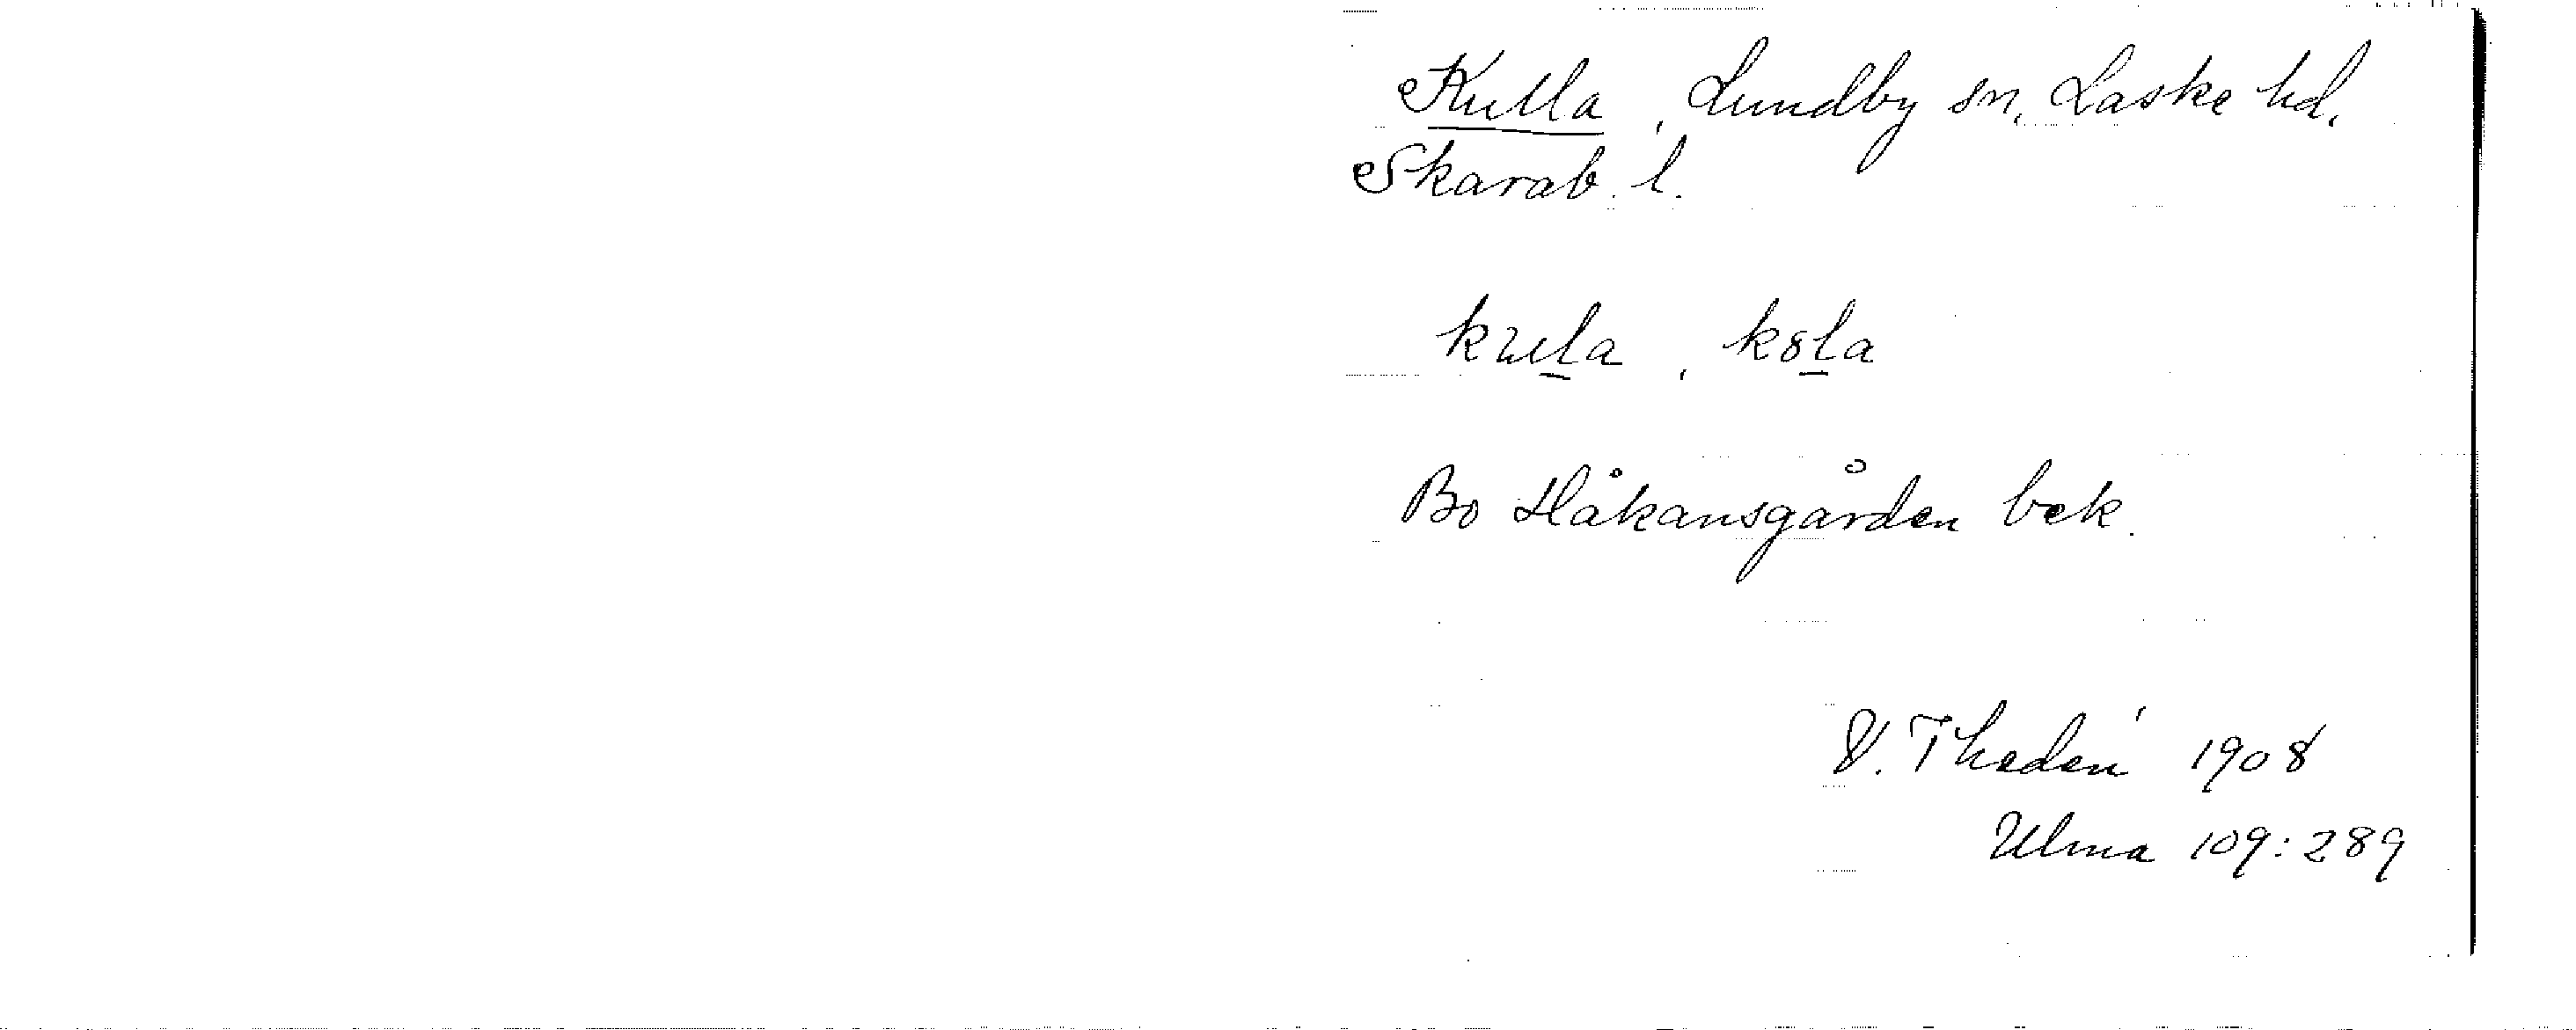 Kulla, Lundby sn, Laske hd,
Skarab. l.
kula, k8la
Bo Håkansgården bek.
V. Thedén 1908
Ulma 109:289